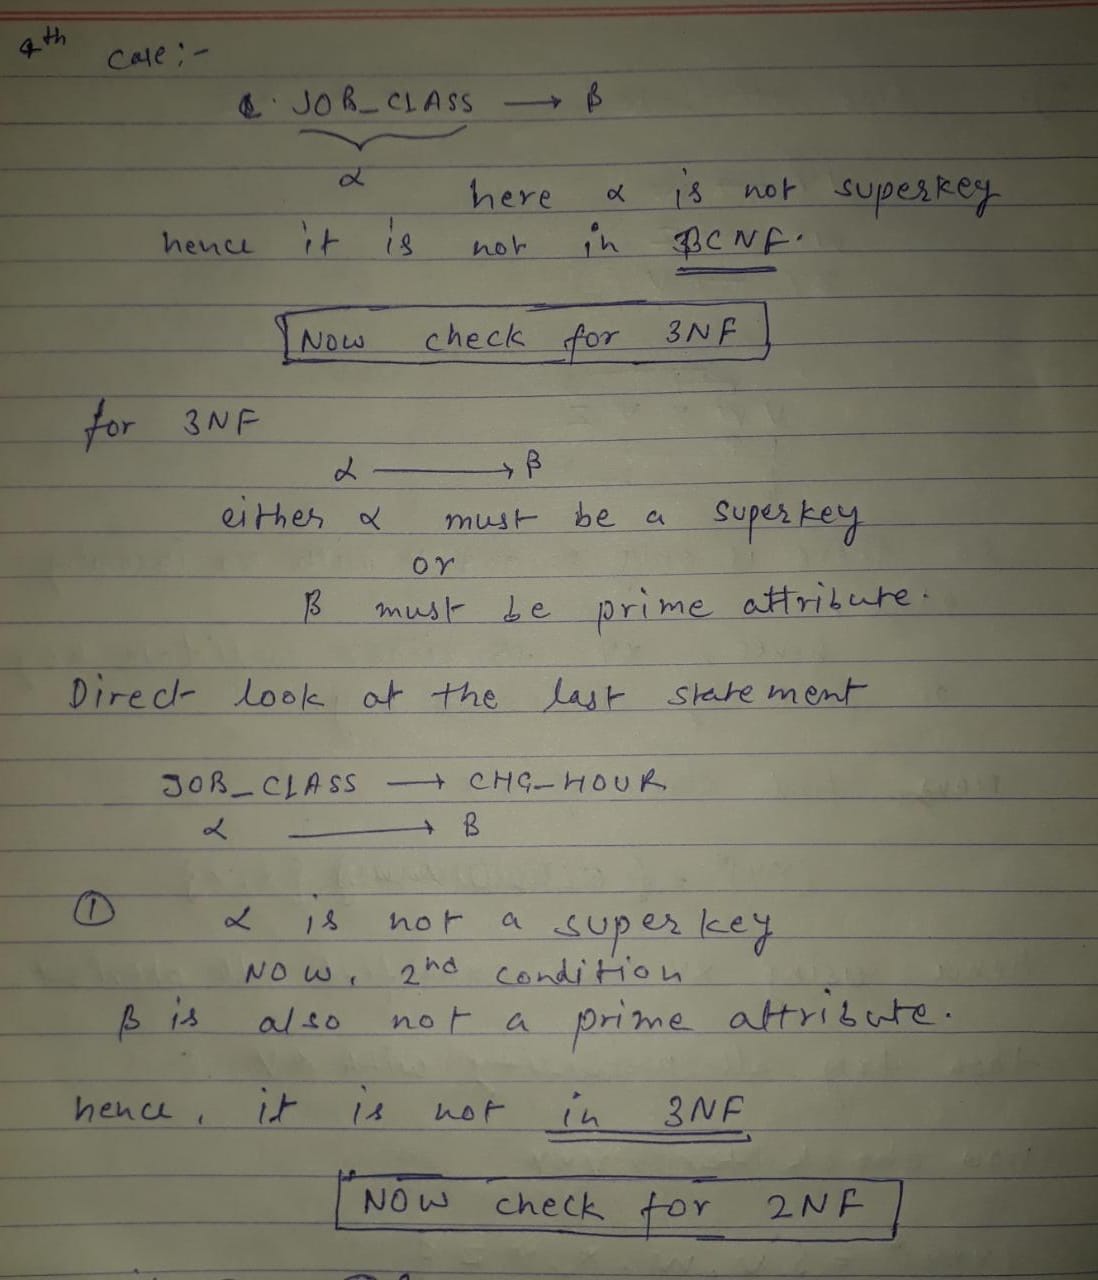 4th case :-
JOB_CLASS → β
α
here α is not superkey
hence it is not in BCNF.
Now check for 3NF
for 3NF
α → β
either α must be a superkey
or
β must be prime attribute.
Direct look at the last statement
JOB_CLASS → CHG_HOUR
α → β
① α is not a superkey
NOW, 2nd condition
β is also not a prime attribute.
hence, it is not in 3NF
NOW check for 2NF